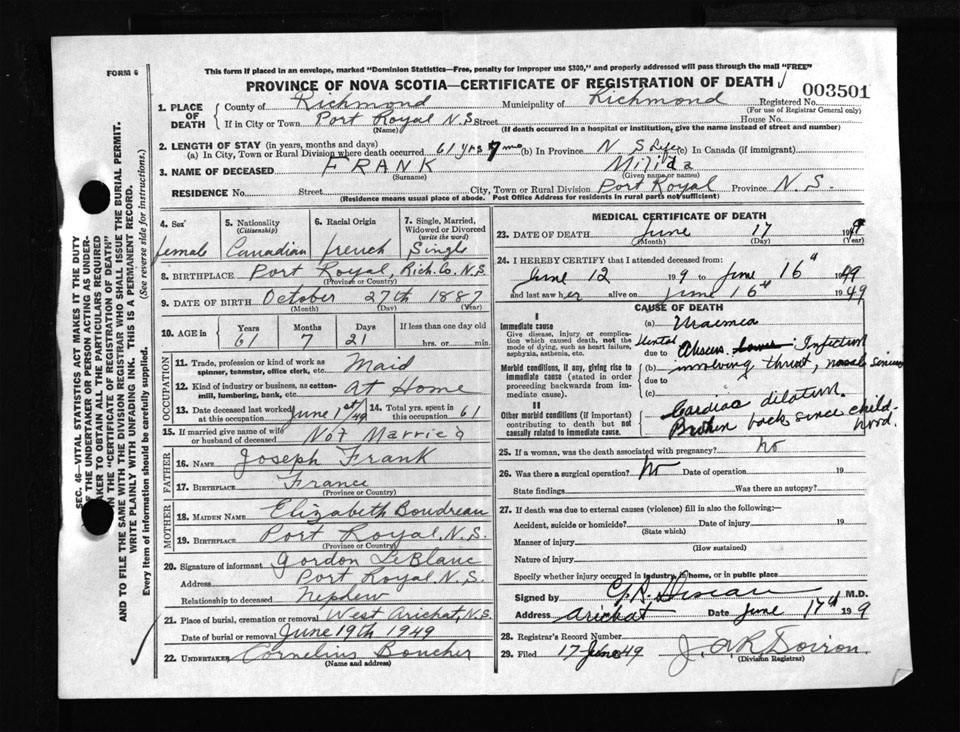 FORM 6
This form if placed in an envelope, marked "Dominion Statistics—Free, penalty for improper use $300," and properly addressed will pass through the mail "FREE"
PROVINCE OF NOVA SCOTIA—CERTIFICATE OF REGISTRATION OF DEATH
003501
1. PLACE OF DEATH
County of Richmond Municipality of Richmond Registered No.
(For use of Registrar General only)
If in City or Town Port Royal N.S. Street House No.
(Name) (If death occurred in a hospital or institution, give the name instead of street and number)
2. LENGTH OF STAY (in years, months and days)
(a) In City, Town or Rural Division where death occurred 61 yrs 7 mo (b) In Province N.S. (c) In Canada (if immigrant)
3. NAME OF DECEASED FRANK Milida
(Surname) (Given name or names)
RESIDENCE No. Street City, Town or Rural Division Port Royal Province N.S.
(Residence means usual place of abode. Post Office Address for residents in rural parts not sufficient)
4. Sex 5. Nationality 6. Racial Origin 7. Single, Married, Widowed or Divorced
(Citizenship) (write the word)
female Canadian french Single
8. BIRTHPLACE Port Royal, Rich. Co. N.S.
(Province or Country)
9. DATE OF BIRTH October 27th 1887
(Month) (Day) (Year)
10. AGE in Years Months Days If less than one day old
61 7 21 hrs. or min.
OCCUPATION
11. Trade, profession or kind of work as spinner, teamster, office clerk, etc. Maid
12. Kind of industry or business, as cotton-mill, lumbering, bank, etc. At Home
13. Date deceased last worked at this occupation June 1st/49 14. Total yrs. spent in this occupation 61
15. If married give name of wife or husband of deceased Not Married
FATHER
16. NAME Joseph Frank
17. BIRTHPLACE France
(Province or Country)
MOTHER
18. MAIDEN NAME Elizabeth Boudreau
19. BIRTHPLACE Port Royal, N.S.
(Province or Country)
20. Signature of informant Gordon LeBlanc
Address Port Royal N.S.
Relationship to deceased Nephew
21. Place of burial, cremation or removal West Arichat, N.S.
Date of burial or removal June 19th 1949
22. UNDERTAKER Cornelius Boucher
(Name and address)
MEDICAL CERTIFICATE OF DEATH
23. DATE OF DEATH June 17 1949
(Month) (Day) (Year)
24. I HEREBY CERTIFY that I attended deceased from:
June 12 1949 to June 16th 1949
and last saw her alive on June 16th 1949
CAUSE OF DEATH
I
Immediate cause
Give disease, injury or complication which caused death, not the mode of dying, such as heart failure, asphyxia, asthenia, etc.
(a) Uraemia
due to Dental Abscess Infection
Morbid conditions, if any, giving rise to immediate cause (stated in order proceeding backwards from immediate cause).
(b) involving throat,
due to
(c)
II
Other morbid conditions (if important) contributing to death but not causally related to immediate cause.
Cardiac dilation.
Broken back since childhood.
25. If a woman, was the death associated with pregnancy? no
26. Was there a surgical operation? No Date of operation 19
State findings Was there an autopsy?
27. If death was due to external causes (violence) fill in also the following:—
Accident, suicide or homicide? Date of injury 19
(State which)
Manner of injury
(How sustained)
Nature of injury
Specify whether injury occurred in industry, in home, or in public place
Signed by M.D.
Address Arichat Date June 17th 1949
28. Registrar's Record Number
29. Filed 17 June 49 J. A. R. Doiron.
(Division Registrar)
SEC. 46—VITAL STATISTICS ACT MAKES IT THE DUTY
OF THE UNDERTAKER OR PERSON ACTING AS UNDERTAKER TO OBTAIN ALL THE PARTICULARS REQUIRED
ON THE "CERTIFICATE OF REGISTRATION OF DEATH"
AND TO FILE THE SAME WITH THE DIVISION REGISTRAR WHO SHALL ISSUE THE BURIAL PERMIT.
WRITE PLAINLY WITH UNFADING INK. THIS IS A PERMANENT RECORD.
Every item of information should be carefully supplied. (See reverse side for instructions.)